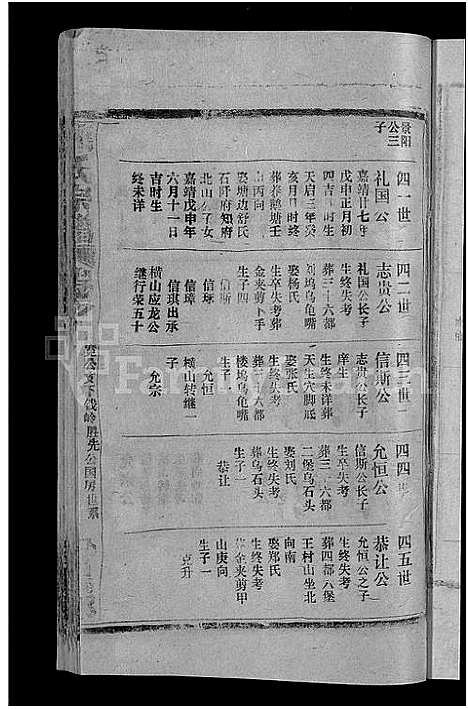 景阳
公三
子
四一世
礼国公
嘉靖廿七年
戊申正月初
四吉时生
天启三年癸
亥月日时终
葬吞鹅塘壬
山丙向
娶塘边舒氏
石阡府知府
北山公子女
嘉靖戊申年
六月十一日
吉时生
终未详
四二世
志贵公
礼国公长子
生终失考
葬三十六都
刘坞乌龟嘴
娶杨氏
生卒失考葬
金夹剪卜手
生子四
信斯
信琢
信璋
信琪出承
横山应龙公
继行荣五十
四三世
信斯公
志贵公长子
庠生
生终未详葬
天生穴脚底
娶张氏
生终失考
葬三十六都
楼坞乌龟嘴
生子三
允恒
横山转继一
子
允宗
四四世
允恒公
信斯公长子
生卒失考
葬三十六都
二堡乌石头
娶刘氏
生终失考
葬乌石头
生子一
恭让
四五世
恭让公
允恒公之子
生终失考
葬四都八堡
王村山坐北
向南
娶郑氏
生终失考
葬金夹剪甲
山庚向
生子一
克升
贵公支下钱岭胜先公国房世系